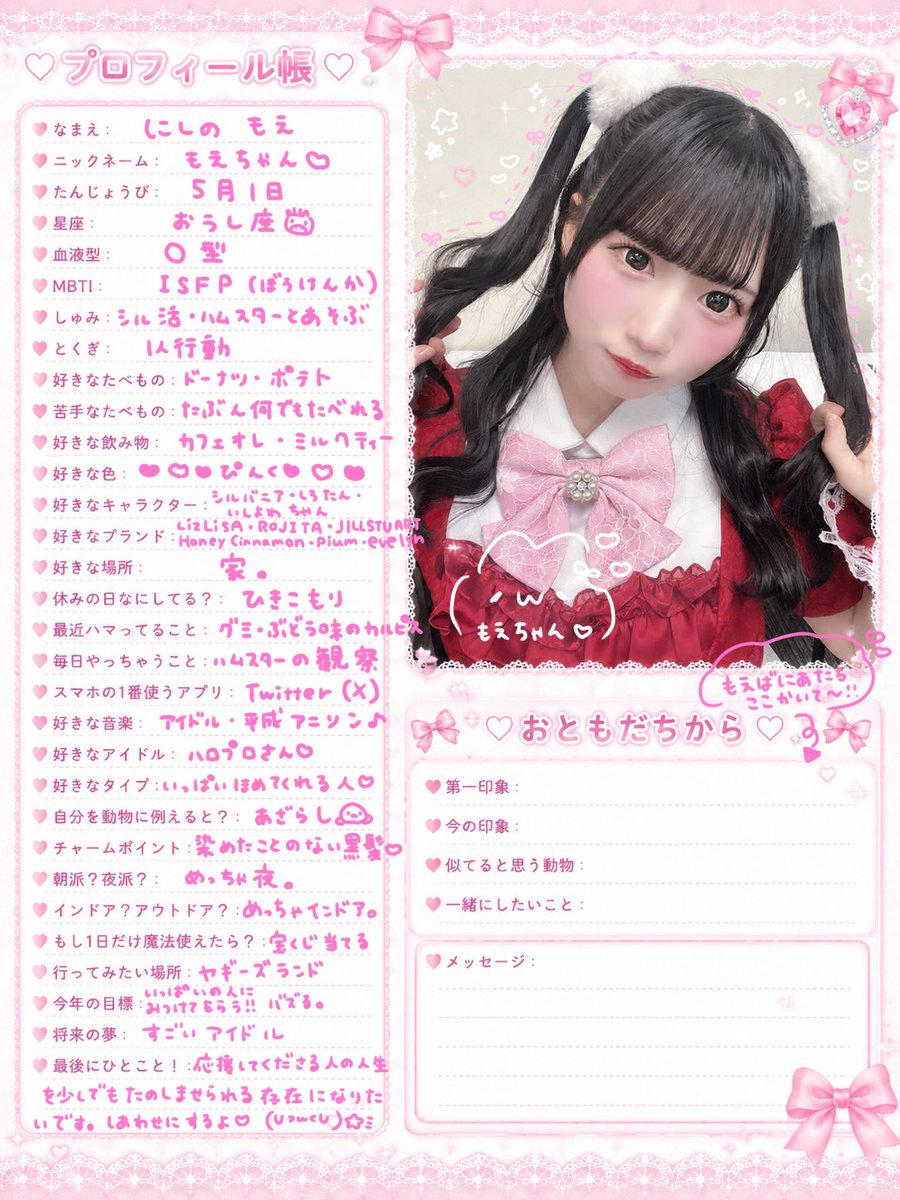 プロフィール帳
なまえ： にしの もえ
ニックネーム： もえちゃん♡
たんじょうび： 5月1日
星座： おうし座
血液型： O型
MBTI： ISFP (ぼうけんか)
しゅみ：シル活・ハムスターとあそぶ
とくぎ： 1人行動
好きなたべもの：ドーナツ・ポテト
苦手なたべもの：たぶん何でもたべれる
好きな飲み物： カフェオレ・ミルクティー
好きな色：♥♡♥ぴんく♥♡♥
好きなキャラクター：シルバニア・しろたん・
いしよわちゃん
好きなブランド：LIZ LISA・ROJITA・JILLSTUART
Honey Cinnamon・Pium・evelyn
好きな場所： 家。
休みの日なにしてる？： ひきこもり
最近ハマってること：グミ・ぶどう味のカルピス
毎日やっちゃうこと：ハムスターの観察
スマホの1番使うアプリ：Twitter (X)
好きな音楽： アイドル・平成アニソン♪
好きなアイドル： ハロプロさん♡
好きなタイプ：いっぱいほめてくれる人♡
自分を動物に例えると？： あざらし
チャームポイント：染めたことのない黒髪♡
朝派？夜派？： めっちゃ夜。
インドア？アウトドア？：めっちゃインドア。
もし1日だけ魔法使えたら？：宝くじ当てる
行ってみたい場所：ヤギーズランド
今年の目標：いっぱいの人に
みつけてもらう!! バズる。
将来の夢： すごいアイドル
最後にひとこと！：応援してくださる人の人生
を少しでもたのしませられる存在になりた
いです。しあわせにするよ♡
もえちゃん♡
もえばにあたち
ここかいて〜!!
おともだちから
第一印象：
今の印象：
似てると思う動物：
一緒にしたいこと：
メッセージ：